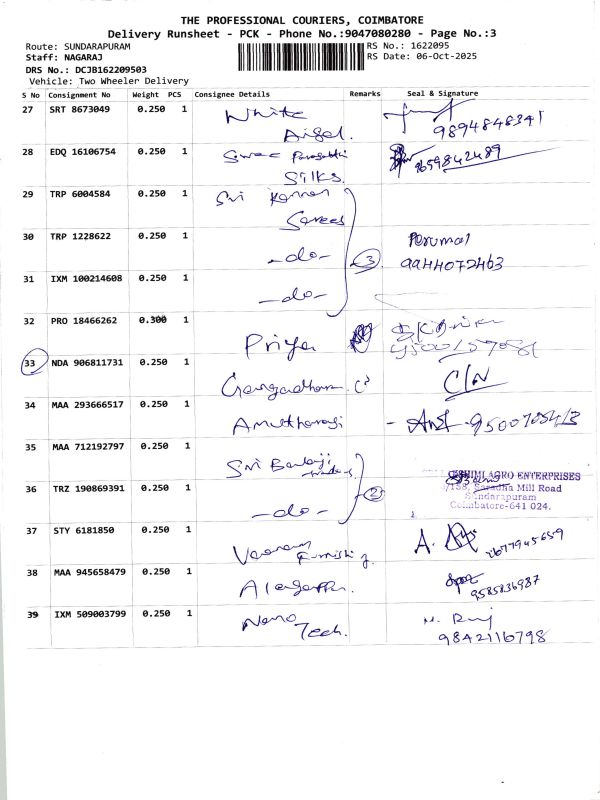 THE PROFESSIONAL COURIERS, COIMBATORE
Delivery Runsheet - PCK - Phone No.:9047080280 - Page No.:3
Route: SUNDARAPURAM
RS No.: 1622095
Staff: NAGARAJ
RS Date: 06-Oct-2025
DRS No.: DCJB162209503
Vehicle: Two Wheeler Delivery
S No Consignment No Weight PCS Consignee Details Remarks Seal & Signature
27 SRT 8673049 0.250 1 White
Angel. 9894848341
28 EDQ 16106754 0.250 1
Silks. 9659842489
29 TRP 6004584 0.250 1 Sri Kannan
Sarees
30 TRP 1228622 0.250 1 -do- 3 Perumal
9944072463
31 IXM 100214608 0.250 1 -do-
32 PRO 18466262 0.300 1 Priya
33 NDA 906811731 0.250 1 Gangadharan. C/N
34 MAA 293666517 0.250 1
35 MAA 712192797 0.250 1 Sri Balaji
36 TRZ 190869391 0.250 1 -do- 2
AGRO ENTERPRISES
Saradha Mill Road
Sundarapuram
Coimbatore-641 024.
37 STY 6181850 0.250 1 Furnishing. A.
38 MAA 945658479 0.250 1
9585836987
39 IXM 509003799 0.250 1 Nano
Tech. 9842116798